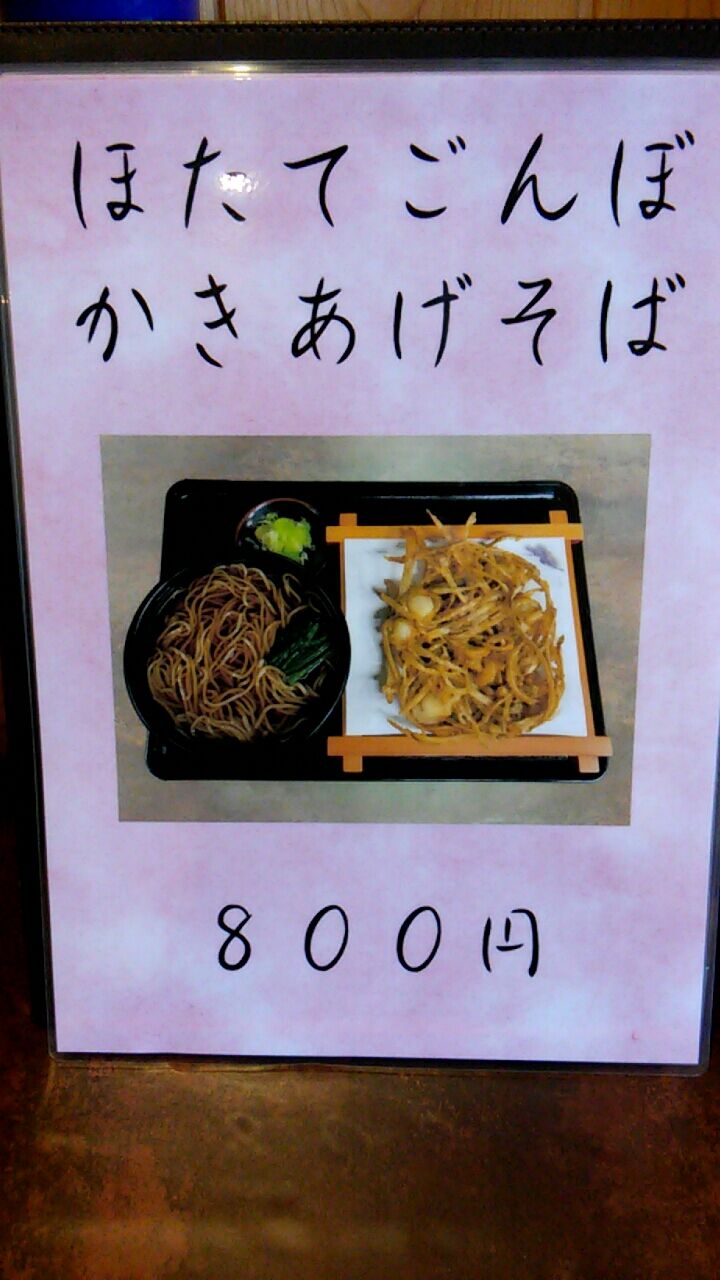 ほたてごんぼ
かきあげそば
800円